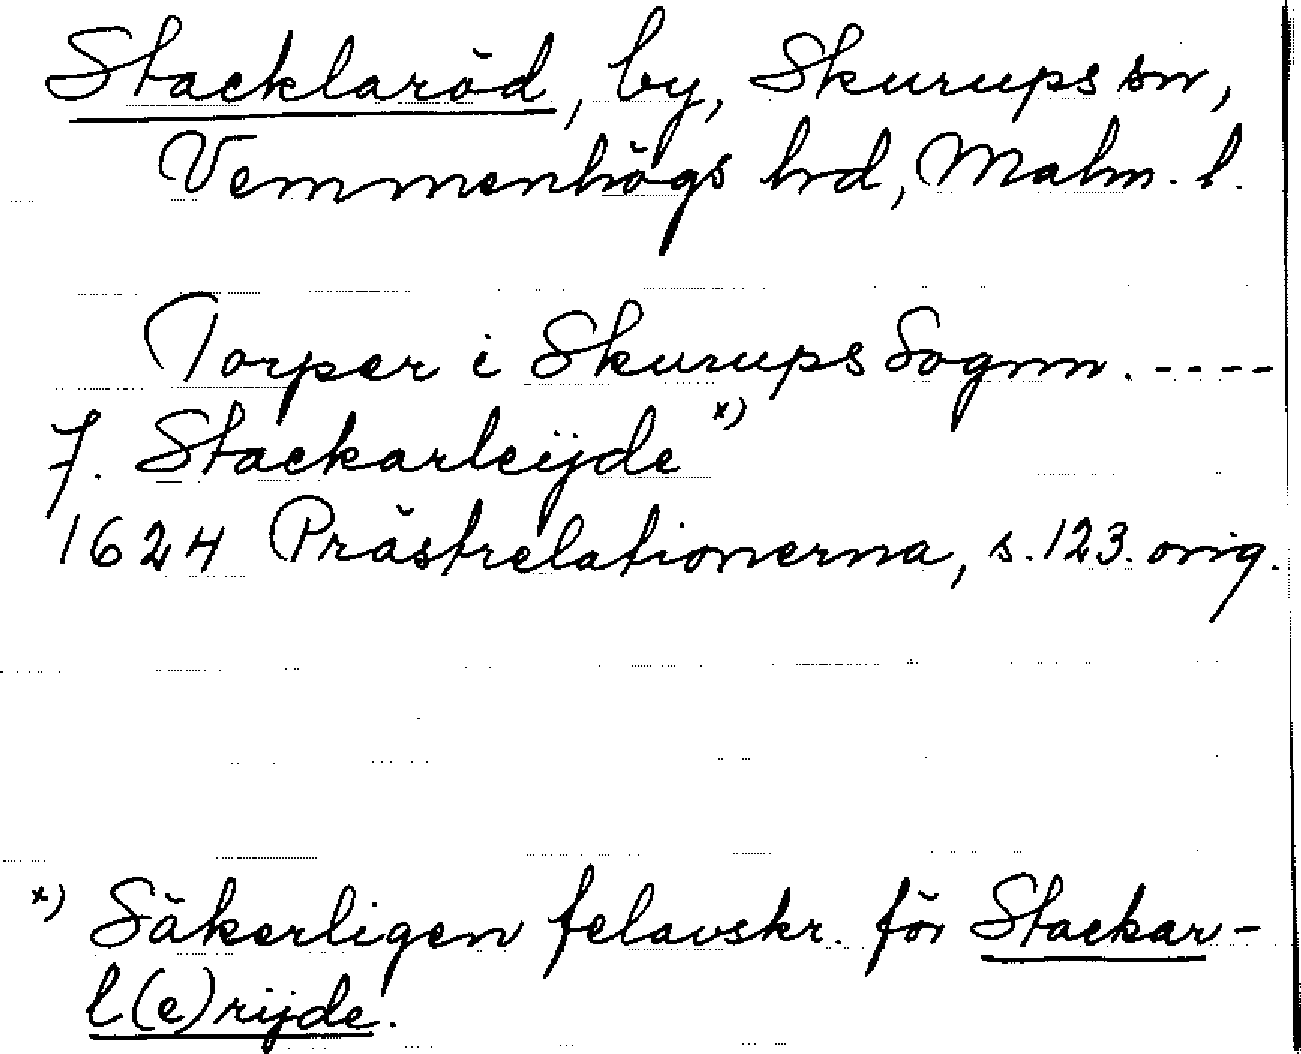 Stacklaröd, by, Skurups sn,
Vemmenhögs hrd, Malm. l.
Torper i Skurups Sognn. ----
7. Stackarleijde x)
1624 Prästrelationerna, s. 123. orig.
x) Säkerligen felavskr. för Stackar-
l(e)rijde.